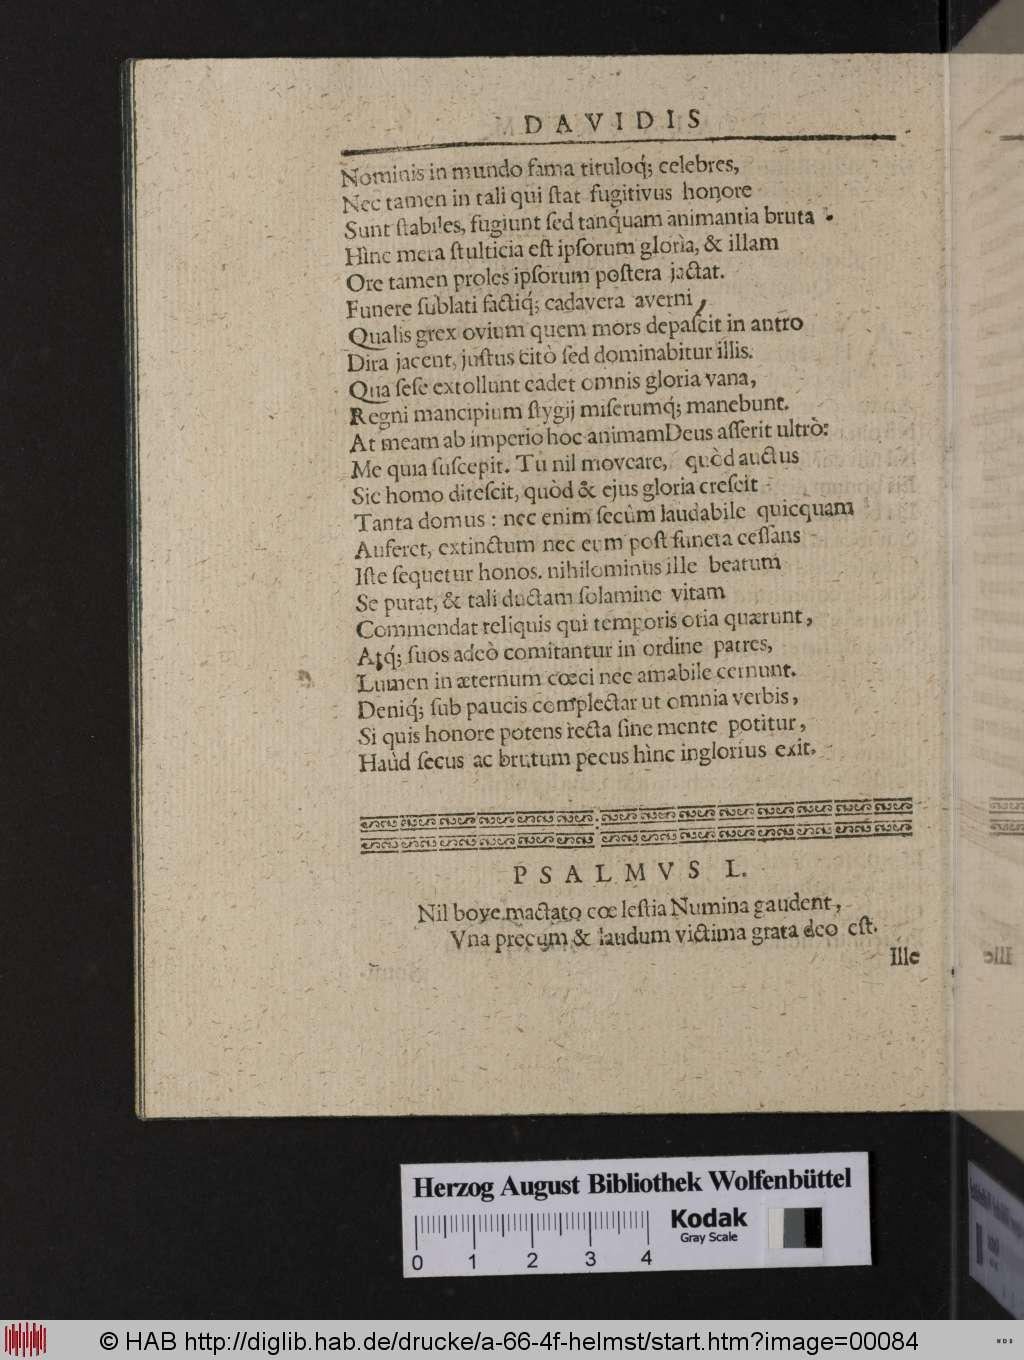 DAVIDIS
Nominis in mundo fama tituloq́; celebres,
Nec tamen in tali qui ſtat fugitivus honore
Sunt ſtabiles, fugiunt ſed tanquam animantia bruta.
Hìnc mera ſtulticia eſt ipſorum gloria, & illam
Ore tamen proles ipſorum poſtera jactat.
Funere ſublati factiq́; cadavera averni,
Qualis grex ovium quem mors depaſcit in antro
Dira jacent, juſtus citò ſed dominabitur illis.
Qua ſeſe extollunt cadet omnis gloria vana,
Regni mancipium ſtygij miſerumq́; manebunt.
At meam ab imperio hoc animam Deus aſſerit ultrò:
Me quia ſuſcepit. Tu nil moveare, quòd auctus
Sic homo diteſcit, quòd & ejus gloria creſcit
Tanta domus: nec enim ſecùm laudabile quicquam
Auferet, extinctum nec eum poſt funera ceſſans
Iſte ſequetur honos. nihilominus ille beatum
Se putat, & tali ductam ſolamine vitam
Commendat reliquis qui temporis otia quærunt,
Atq́; ſuos adeò comitantur in ordine patres,
Lumen in æternum cœci nec amabile cernunt.
Deniq́; ſub paucis complectar ut omnia verbis,
Si quis honore potens recta ſine mente potitur,
Haùd ſecus ac brutum pecus hìnc inglorius exit.
PSALMVS L.
Nil bove mactato cœleſtia Numina gaudent,
Vna precum & laudum victima grata deo eſt.
Ille
Herzog August Bibliothek Wolfenbüttel
0 1 2 3 4
Kodak
Gray Scale
© HAB http://diglib.hab.de/drucke/a-66-4f-helmst/start.htm?image=00084